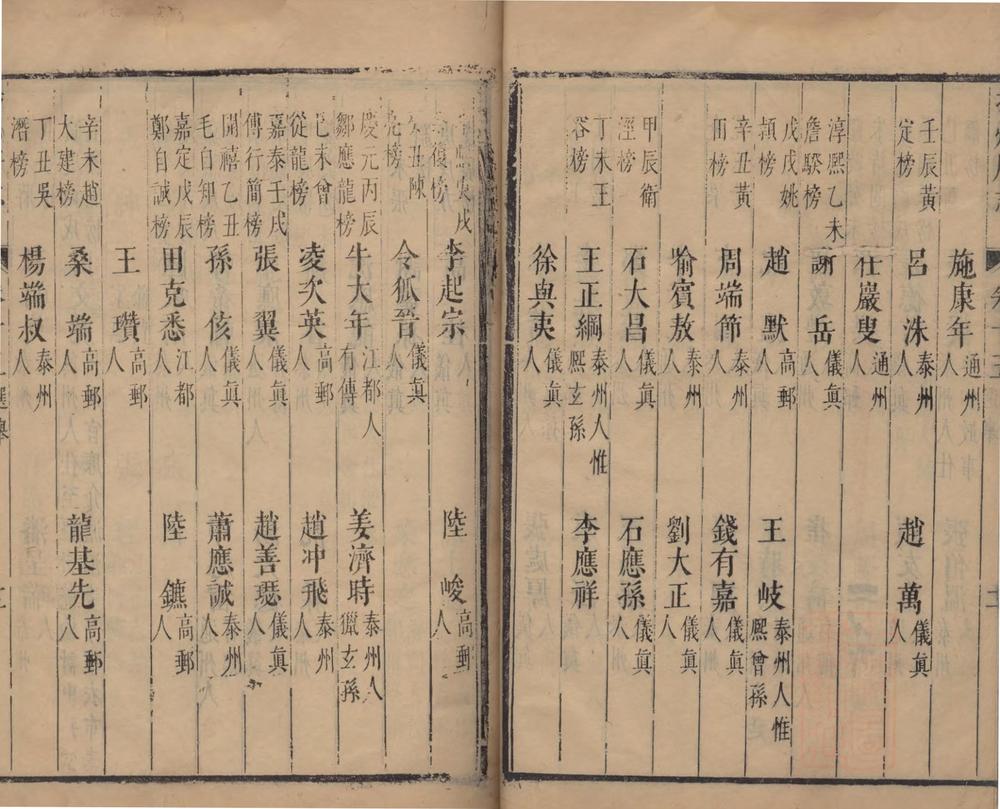 施康年 通州人
壬辰黃定榜 呂洙 泰州人 趙萬 儀眞人
任巖叟 通州人
淳熙乙未詹騤榜 謝岳 儀眞人
戊戌姚穎榜 趙默 高郵人 王岐 泰州人惟熙曾孫
辛丑黃由榜 周端節 泰州人 錢有嘉 儀眞人
喻賓敖 泰州人 劉大正 儀眞人
甲辰衛涇榜 石大昌 儀眞人 石應孫 儀眞人
丁未王容榜 王正綱 泰州人惟熙玄孫 李應祥
徐與夷 儀眞人
庚戌 復榜 李起宗 陸峻 高郵人
丑陳亮榜 令狐晉 儀眞人
慶元丙辰鄒應龍榜 牛大年 江都人有傳 姜濟時 泰州人獵玄孫
己未曾從龍榜 凌次英 高郵人 趙冲飛 泰州人
嘉泰壬戌傅行簡榜 張翼 儀眞人 趙善瑟 儀眞人
開禧乙丑毛自知榜 孫侅 儀眞人 蕭應誠 泰州人
嘉定戊辰鄭自誠榜 田克悉 江都人 陸鑣 高郵人
王瓚 高郵人
辛未趙大建榜 桑端 高郵人 龍基先 高郵人
丁丑吳潛榜 楊端叔 泰州人
選舉